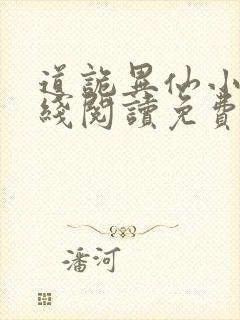 道詭異仙小
綫閱讀免費
潘河